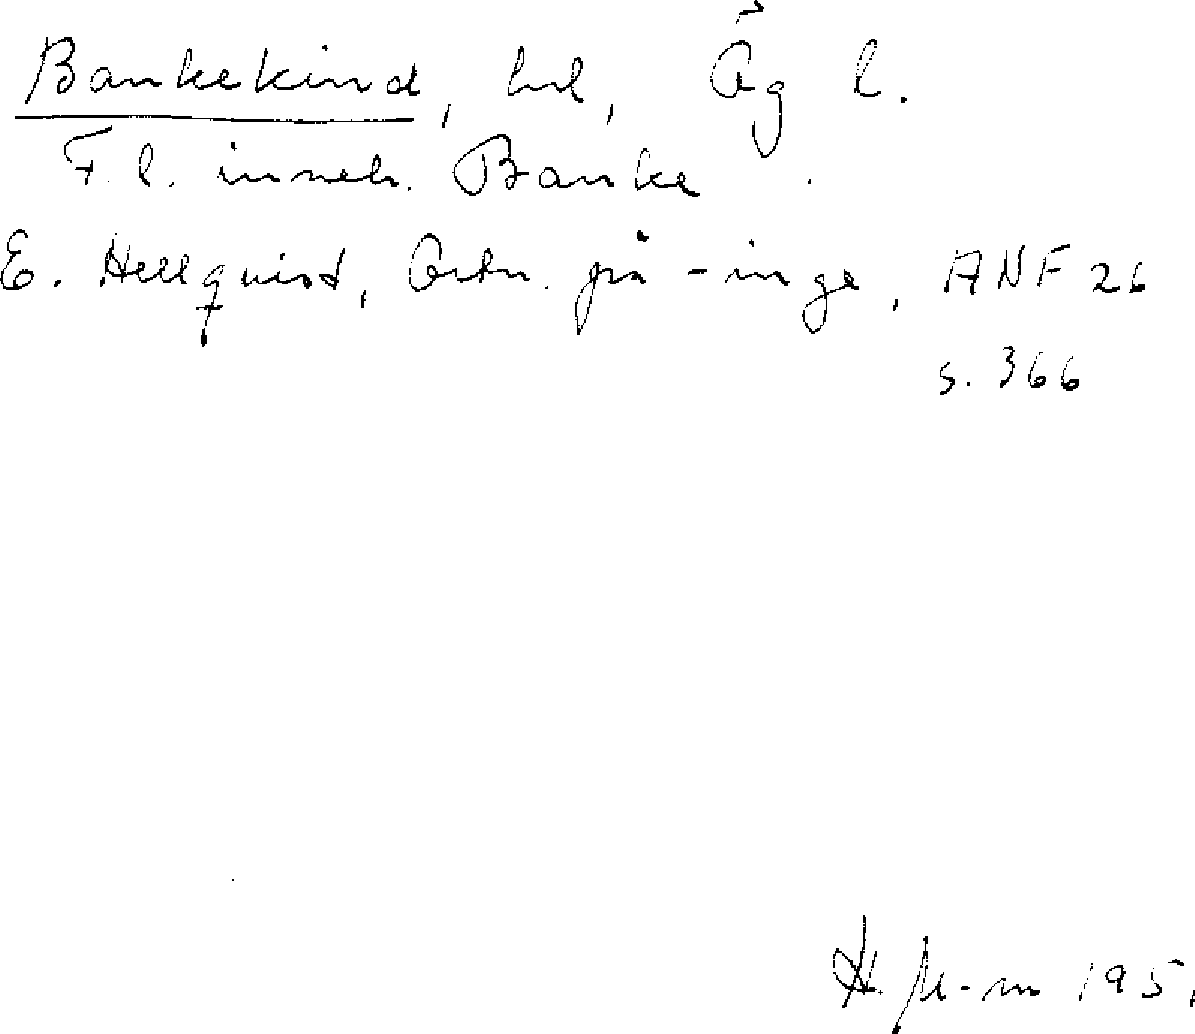 Bankekind, hd, Ög l.
F. l. inneh. Banke
E. Hellquist, Ortn. på -inge, ANF 26
s. 366
H. M-m 195